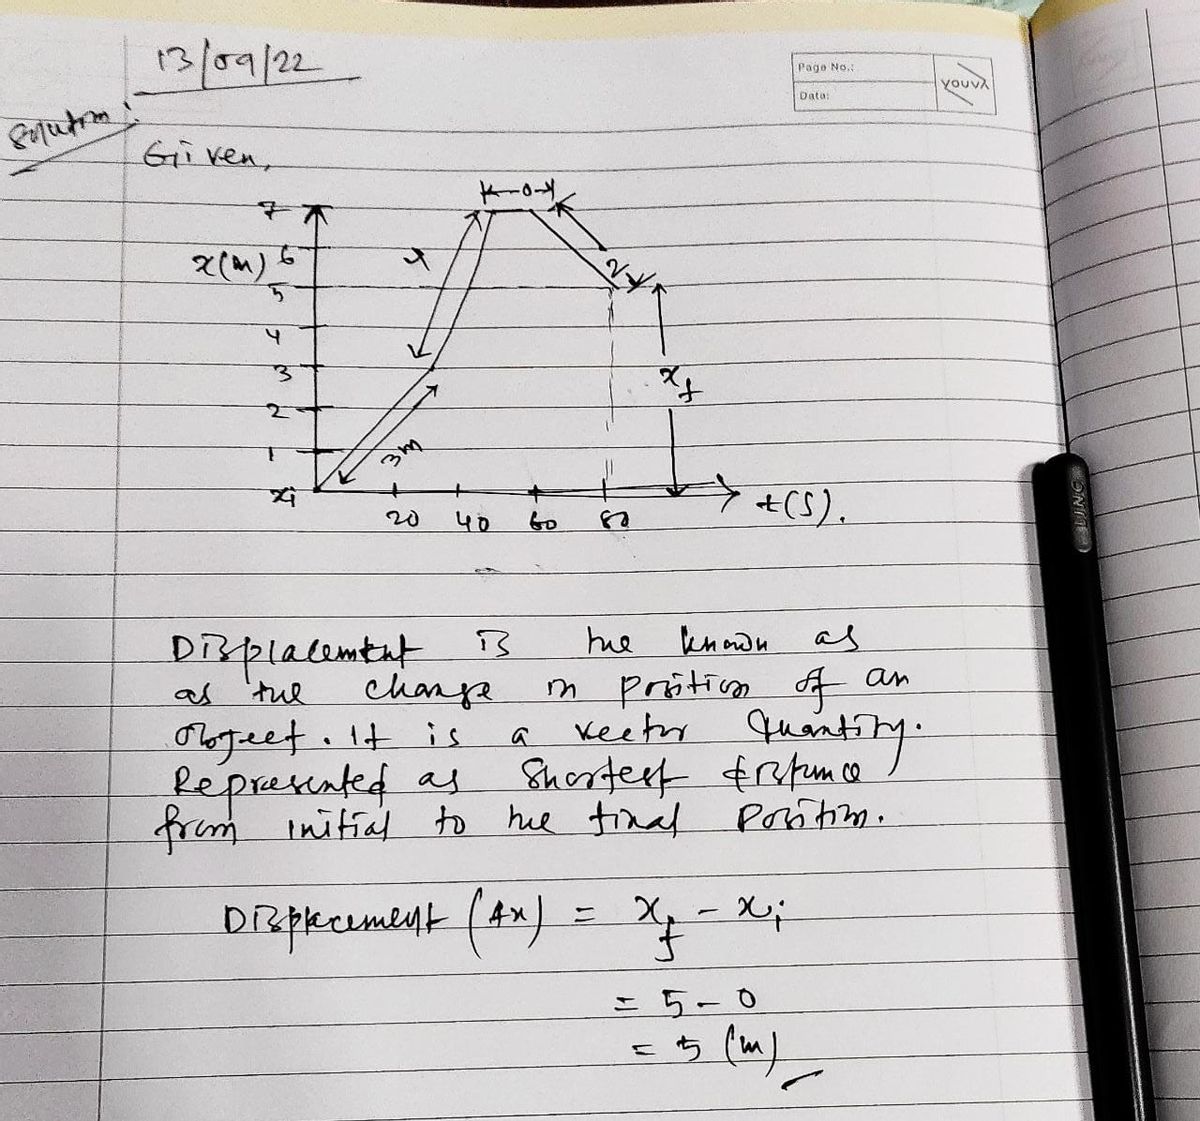 13/09/22
Page No.:
Date:
youva
Solution:
Given,
0
7
x(m) 6
5
4
3
2
1
xi
4
2
xf
3m
20 40 60 80
t(s).
Displacement is the known as
as the change in position of an
object. It is a vector Quantity.
Represented as Shortest distance
from initial to the final Position.
Displacement (Δx) = xf - xi
= 5 - 0
= 5 (m)